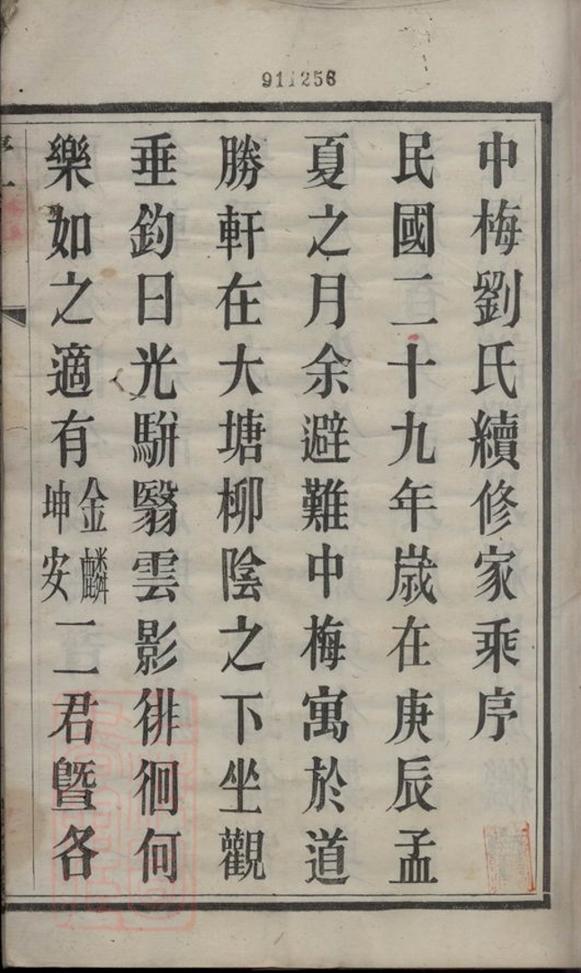 911256
中梅劉氏續修家乘序
民國二十九年歲在庚辰孟
夏之月余避難中梅寓於道
勝軒在大塘柳陰之下坐觀
垂釣日光駢翳雲影徘徊何
樂如之適有金麟坤安二君暨各